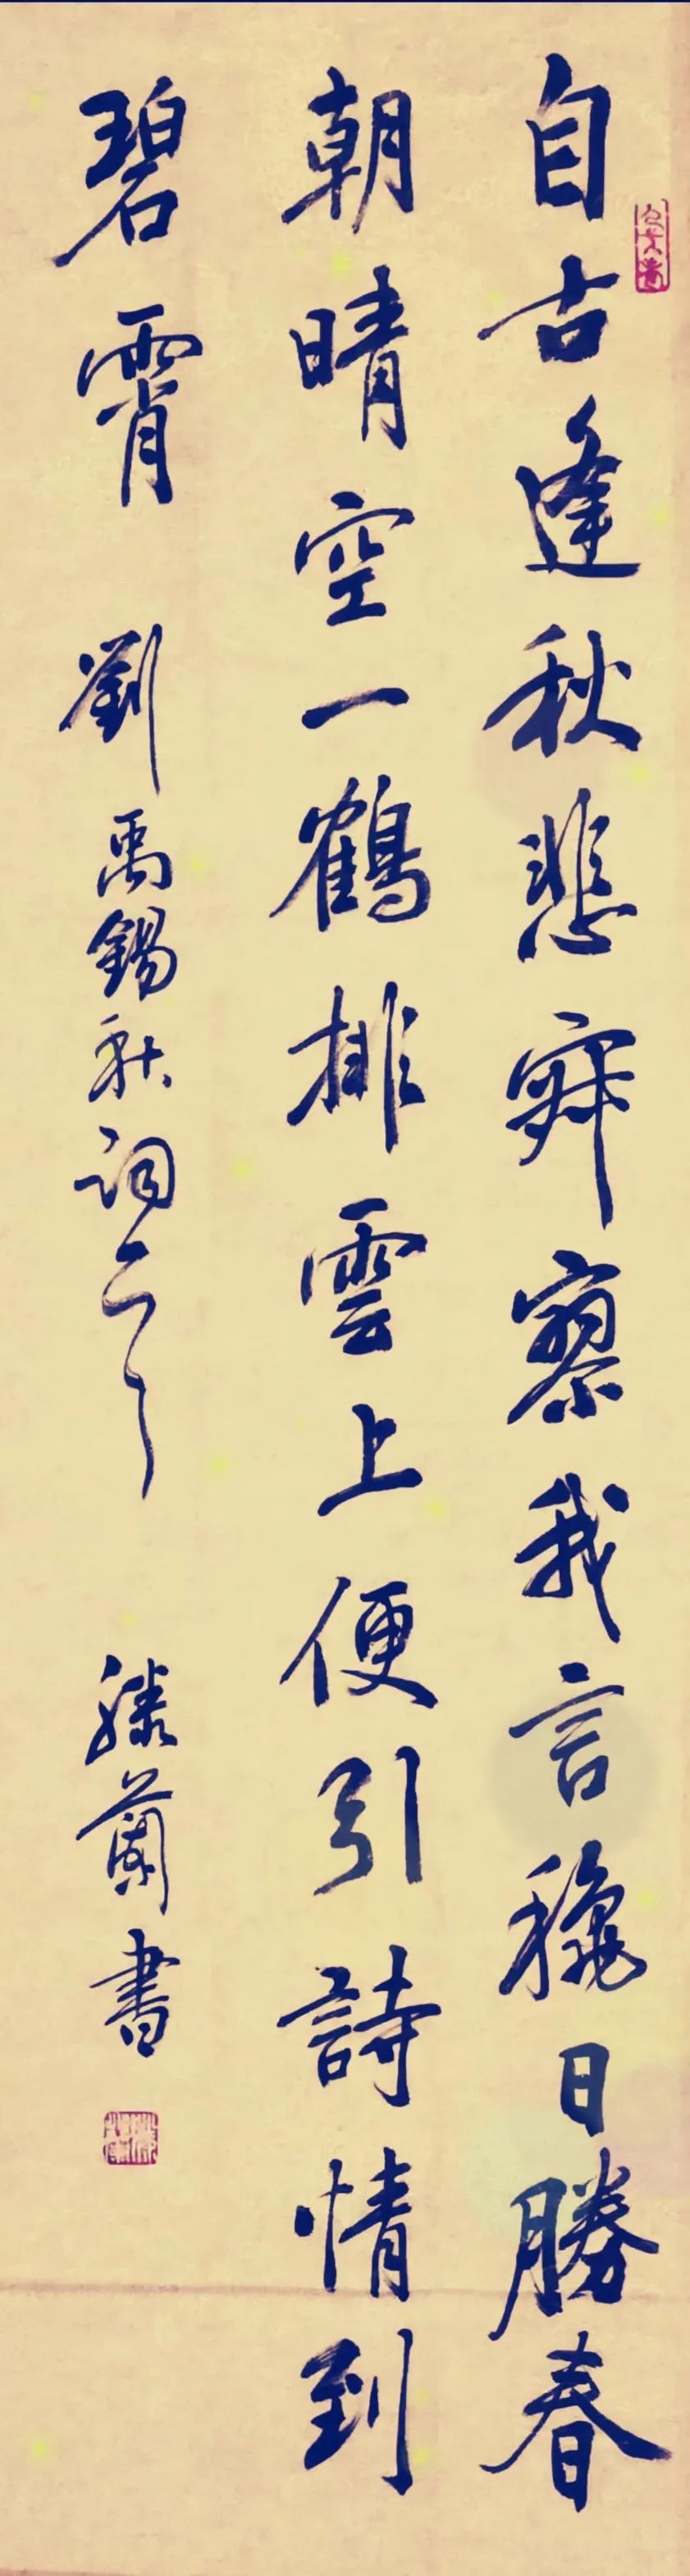 自古逢秋悲寂寥我言穐日勝春
朝晴空一鶴排雲上便引詩情到
碧霄 劉禹錫秋詞 滕蘭書